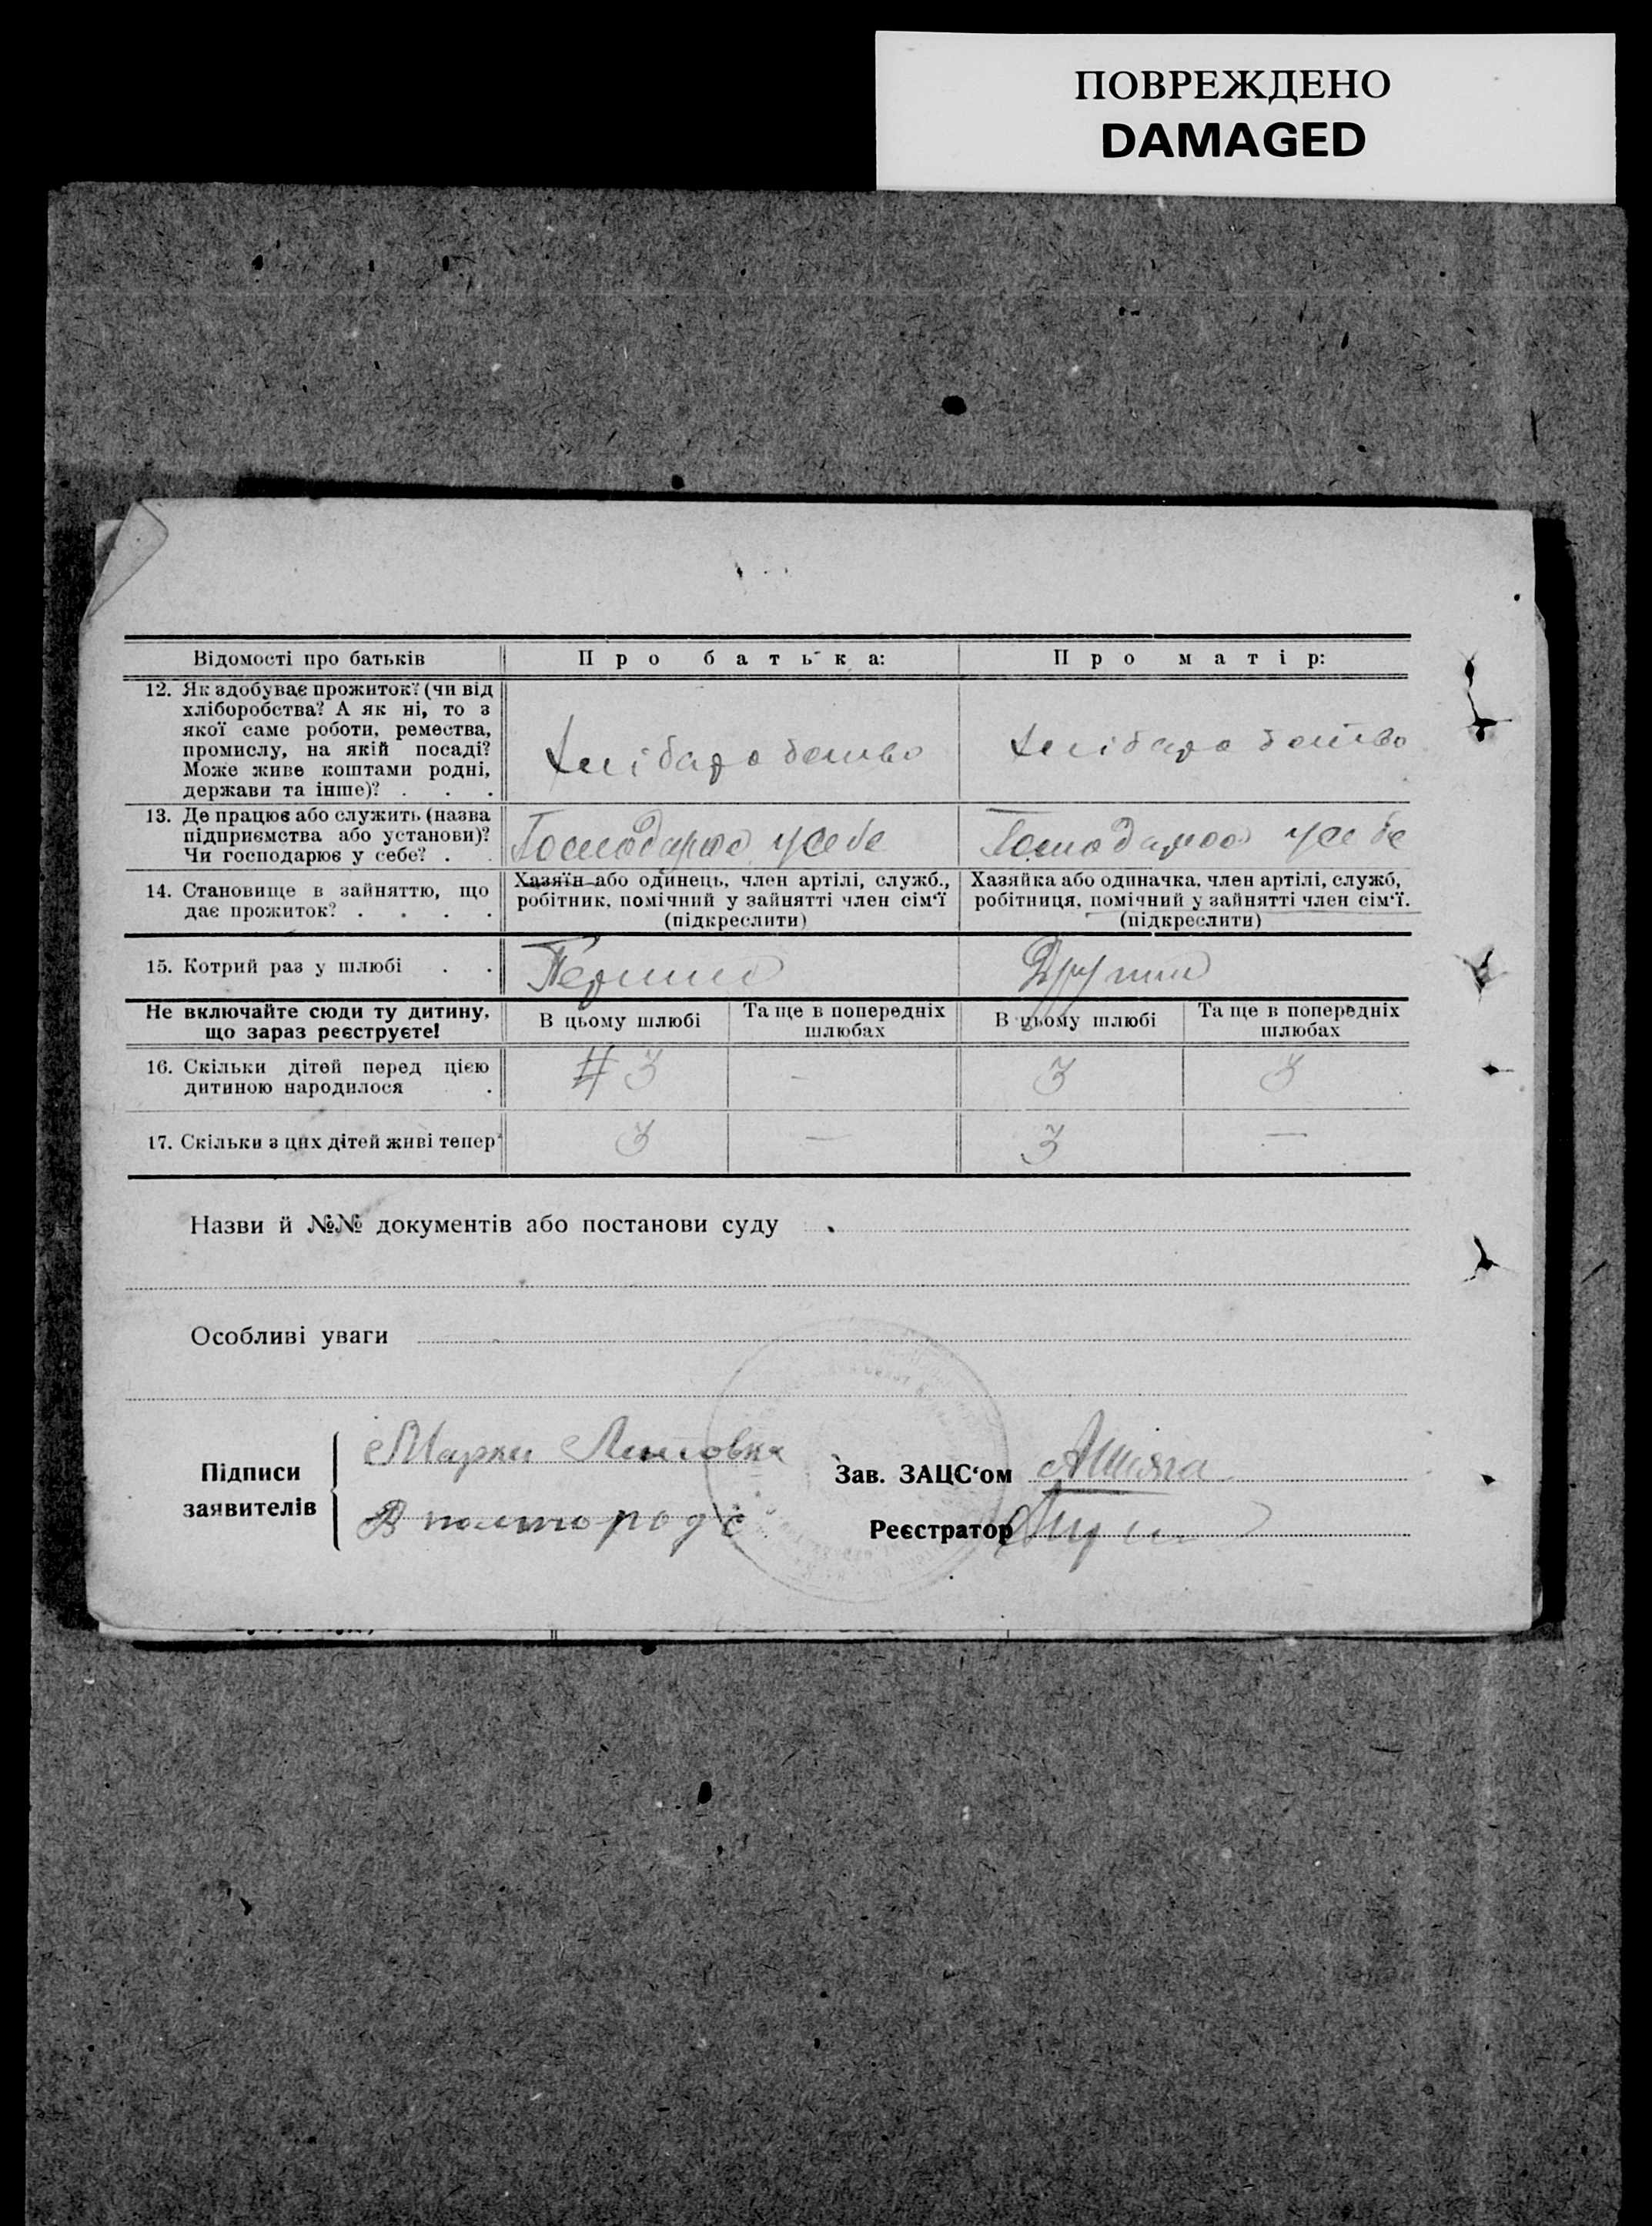 ПОВРЕЖДЕНО
DAMAGED
Відомості про батьків
Про батька:
Про матір:
12. Як здобуває прожиток? (чи від
хліборобства? А як ні, то з
якої саме роботи, ремества,
промислу, на якій посаді?
Може живе коштами родні,
держави та інше)? . . .
Хлібаробство
Хлібаробство
13. Де працює або служить (назва
підприємства або установи)?
Чи господарює у себе? .
Господарює усебе
Господарює усебе
14. Становище в зайняттю, що
дає прожиток? . . . .
Хазяїн або одинець, член артілі, служб.,
робітник, помічний у зайнятті член сім'ї
(підкреслити)
Хазяйка або одиначка, член артілі, служб,
робітниця, помічний у зайнятті член сім'ї.
(підкреслити)
15. Котрий раз у шлюбі . .
Перший
Другий
Не включайте сюди ту дитину,
що зараз реєструєте!
В цьому шлюбі
Та ще в попередніх
шлюбах
В цьому шлюбі
Та ще в попередніх
шлюбах
16. Скільки дітей перед цією
дитиною народилося .
3
-
3
3
17. Скільки з цих дітей живі тепер
3
—
3
—
Назви й №№ документів або постанови суду
Особливі уваги
Підписи
заявителів
Зав. ЗАЦС'ом
Реєстратор